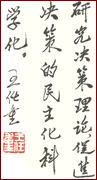 研究决策理论促进
决策的民主化科
学化。
王任重